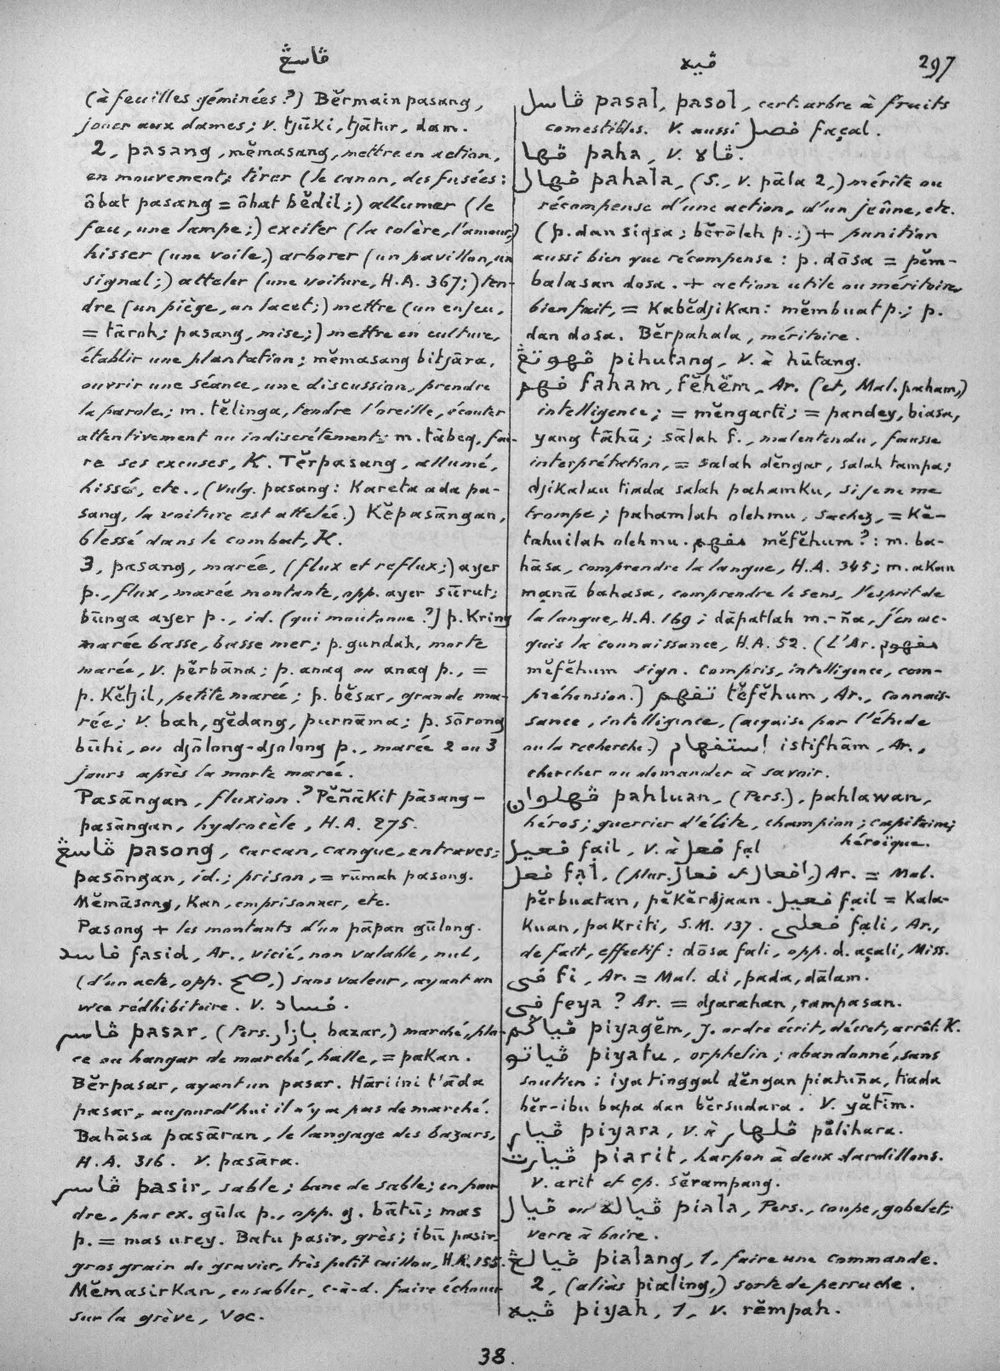 ڤاسڠ
ڤيه
297
(à feuilles géminées?) Bĕrmain pasang,
jouer aux dames; v. tjūki, tjātur, dam.
2, pasang, mĕmasang, mettre en action,
en mouvement; tirer (le canon, des fusées:
ôbat pasang = ôbat bĕdil;) allumer (le
feu, une lampe;) exciter (la colère, l'amour;)
hisser (une voile,) arborer (un pavillon, un
signal;) atteler (une voiture, H.A. 367;) ten-
dre (un piège, un lacet;) mettre (un enjeu,
= tāroh; pasang, mise;) mettre en culture,
établir une plantation; mĕmasang bitjāra,
ouvrir une séance, une discussion, prendre
la parole; m. tĕlinga, tendre l'oreille, écouter
attentivement ou indiscrètement; m. tābeq, fai-
re ses excuses, K. Tĕrpasang, allumé,
hissé, etc., (vulg. pasang: Kareta ada pa-
sang, la voiture est attelée.) Kĕpasāngan,
blessé dans le combat, K.
3, pasang, marée, (flux et reflux;) ayer
p., flux, marée montante, opp. ayer sūrut;
būnga ayer p., id. (qui moutonne?) p. Kring
marée basse, basse mer; p. gundah, morte
marée, v. pĕrbāna; p. anaq ou anaq p., =
p. Kĕtjil, petite marée; p. bĕsar, grande ma-
rée; v. bah, gĕdang, purnāma; p. sōrong
būhi, ou djōlong-djolong p., marée 2 ou 3
jours après la morte marée.
Pasāngan, fluxion? Pĕñākit pāsang-
pasāngan, hydrocèle, H.A. 275.
ڤاسڠ pasong, carcan, cangue, entraves;
pasōngan, id.; prison, = rūmah pasong.
Mĕmāsong, Kan, emprisonner, etc.
Pasong + les montants d'un pāpan gūlong.
فاسد fasid, Ar., vicié, non valable, nul,
(d'un acte, opp. صح,) sans valeur, ayant un
vice rédhibitoire. V. فساد.
ڤاسر pasar, (Pers. بازار bazar,) marché, pla-
ce ou hangar de marché, halle, = paKan.
Bĕrpasar, ayant un pasar. Hāri ini t'āda
pasar, aujourd'hui il n'y a pas de marché.
Bahāsa pasāran, le langage des bazars,
H.A. 316. V. pasāra.
ڤاسر pasir, sable; banc de sable; en pou-
dre, par ex. gūla p., opp. g. bātū; mas
p. = mas urey. Batu pasir, grès; ibū pasir,
gros grain de gravier, très petit caillou, H.A. 155.
MĕmasirKan, ensabler, c-à-d. faire échouer
sur la grève, Voc.
ڤاسل pasal, pasol, cert. arbre à fruits
comestibles. V. aussi فصل façal.
ڤها paha, v. ڤاﻻ.
ڤهال pahala, (S., v. pāla 2,) mérite ou
récompense d'une action, d'un jeûne, etc.
(p. dan siqsa; bĕrōleh p.;) + punition
aussi bien que récompense: p. dōsa = pĕm-
balasan dosa. + action utile ou méritoire,
bienfait, = Kabĕdjikan: mĕmbuat p.; p.
dan dosa. Bĕrpahala, méritoire.
ڤهوتڠ pihutang, v. à hūtang.
فهم faham, fĕhĕm, Ar. (et, Mal. paham,)
intelligence; = mĕngarti; = pandey, biasa,
yang tāhū; sālah f., malentendu, fausse
interprétation, = salah dĕngar, salah tampa;
djikalau tiada salah pahamKu, si je ne me
trompe; pahamlah olehmu, sachez, = Kĕ-
tahuilah olehmu. مفهم mĕfĕhum?: m. ba-
hāsa, comprendre la langue, H.A. 345; m. aKan
maạnā bahasa, comprendre le sens, l'esprit de
la langue, H.A. 169; dāpatlah m.-ña, j'en ac-
quis la connaissance, H.A. 52. (L'Ar. مفهوم
mĕfĕhum sign. compris, intelligence, com-
préhension.) تفهم tĕfĕhum, Ar., connais-
sance, intelligence, (acquise par l'étude
ou la recherche.) استفهام istifhām, Ar.,
chercher ou demander à savoir.
ڤهلوان pahluan, (Pers.), pahlawan,
héros; guerrier d'élite, champion; capitaine;
héroïque.
فعيل fail, v. à فعل fạl
فعل fạl, (plur. افعال et فعال,) Ar. = Mal.
pĕrbuatan, pĕKĕrdjaan. فعيل fạil = Kala-
Kuan, paKriti, S.M. 137. فعلي fạli, Ar.,
de fait, effectif: dōsa fali, opp. d. açali, Miss.
في fi, Ar. = Mal. di, pada, dālam.
في feya? Ar. = djarahan, rampasan.
ڤياڬم piyagĕm, J. ordre écrit, décret, arrêt. K.
ڤياتو piyatu, orphelin; abandonné, sans
soutien: iya tinggal dĕngan piatuña, tiada
bĕr-ibu bapa dan bĕrsudara. V. yātīm.
ڤيار piyara, v. à ڤلهار pĕlihara.
ڤيارت piarit, harpon à deux dardillons.
v. arit et cp. sĕrampang.
ڤيال ou ڤياله piala, Pers., coupe, gobelet;
verre à boire.
ڤيالڠ pialang, 1, faire une commande.
2, (aliàs pialing,) sorte de perruche.
ڤيه piyah, 1, v. rĕmpah.
38.